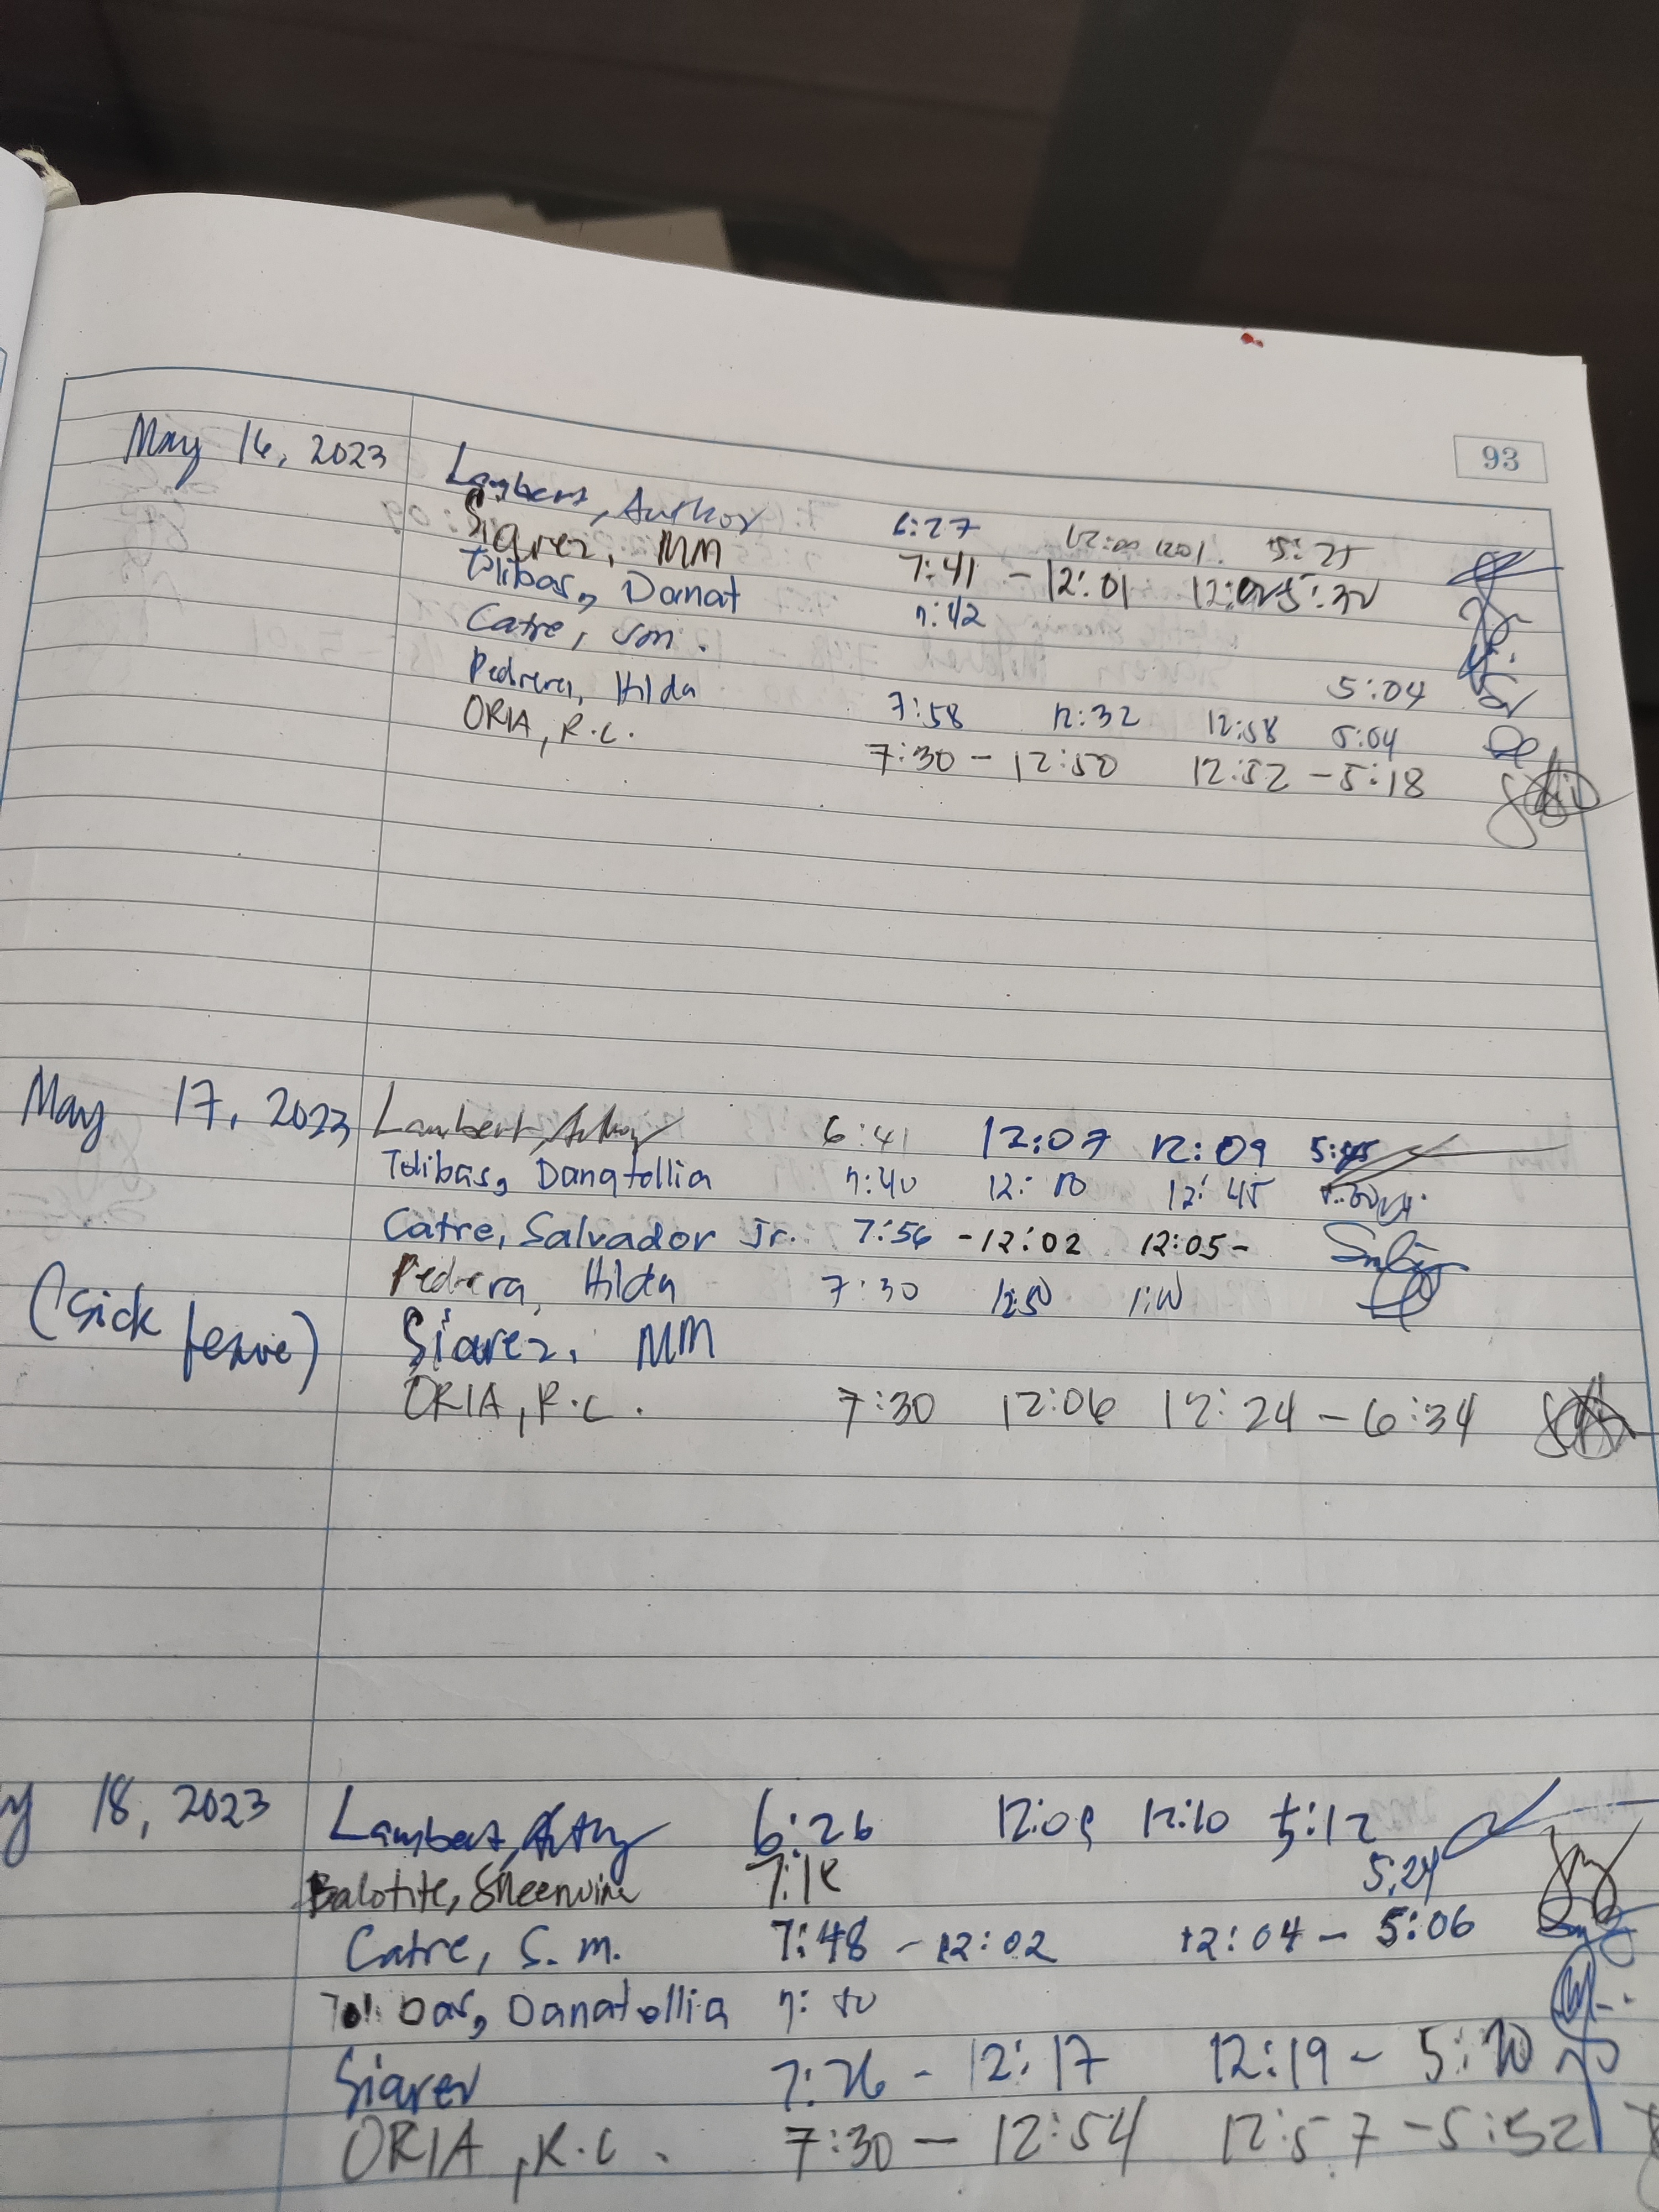 93
May 16, 2023 Lambert, Author 6:27 12:00 1201 5:25
Siarez, MM 7:41 - 12:01 5:30
Tolibas, Danat 7:42
Catre, sm. 5:04
Pedrera, Hilda 7:58 12:32 12:58 5:04
ORIA, R.C. 7:30 - 12:50 12:52 - 5:18
May 17, 2023 Lambert, 6:41 12:07 12:09
Tolibas, Danatollia 7:40 12:10 12:45
Catre, Salvador Jr. 7:56 - 12:02 12:05 -
Pedrera, Hilda 7:30 12:50 1:00
(Sick Leave) Siarez, MM
ORIA, R.C. 7:30 12:06 12:24 - 6:34
18, 2023 Lambert, 6:26 12:09 12:10 5:12
Balotite, Sheenwina 5:24
Catre, S.M. 7:48 - 12:02 12:04 - 5:06
Tolibas, Danatollia
Siarez 7:26 - 12:17 12:19 - 5:20
ORIA, R.C. 7:30 - 12:54 12:57 - 5:52